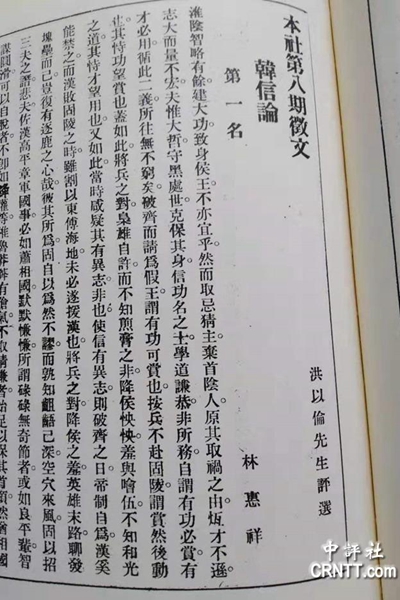 本社第八期徵文
韓信論
洪以倫先生評選
第一名
林惠祥
淮陰智略有餘建大功致身侯王不亦宜乎。然而取忌猜主棄首陰人原其取禍之由恆才不遜。
志大而量不宏夫惟大哲守黑處世克保其身信功名之士學道謙恭非所務自謂有功必賞有
才必用循此二義所往無不窮矣破齊而請爲假王謂有功可賞也按兵不赴固陵謂賞然後動
也其恃功望賞也蓋如此將兵之對梟雄自許而不知煎膏之非降侯怏怏羞與噲伍不知和光
之道其恃才望用也又如此當時咸疑其有異志非也使信有異志則破齊之日帝制自爲漢奚
能禁之而漢敗固陵之時雖割以東傅海地未必遂援漢也將兵之對降侯之羞英雄末路聊發
塊壘而已豈復有逐鹿之心哉彼其所爲固自以爲然不謬而孰知齟齬已深空穴來風固以招
三夫之謗非夫佐漢高平章軍國事必如蕭相國默默慊慊所謂碌碌無奇節者或如良平輩智
可以自脫者不
中評社
CRNTT.com